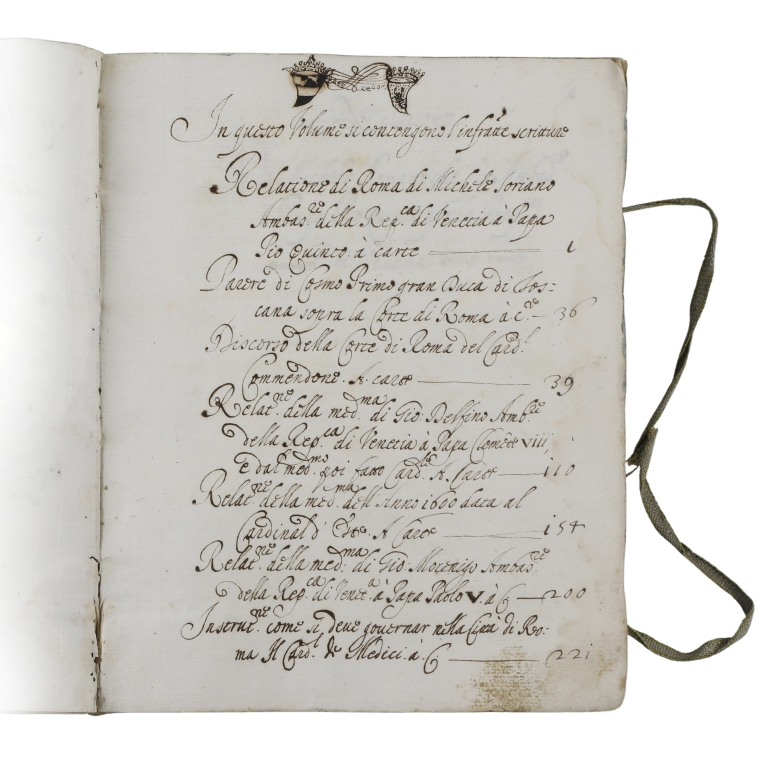 In questo Volume si contengono l'infra.tte scritture
Relatione di Roma di Michele Soriano
Ambas.re della Rep.ca di Venetia à Papa
Pio Quinto à carte 1
Parere di Cosmo Primo gran Duca di Tos=
cana sopra la Corte di Roma à c.te 36
Discorso della Corte di Roma del Card.l
Commendone. A carte 39
Relat.ne della med.ma di Gio: Delfino Amb.re
della Rep.ca di Venetia à Papa Clemete VIII,
e dal med.mo poi fatto Card.le A. Carte 110
Relat.ne della med.ma dell'Anno 1600 data al
Cardinal d'Este. A Carte 154
Relat.ne della med.ma di Gio: Mocenigo Ambas.re
della Rep.ca di Venet.a à Papa Paolo V. à C 200
Instrut.ne come si deve governar nella Città di Ro=
ma Il Card.l de Medici à C 221